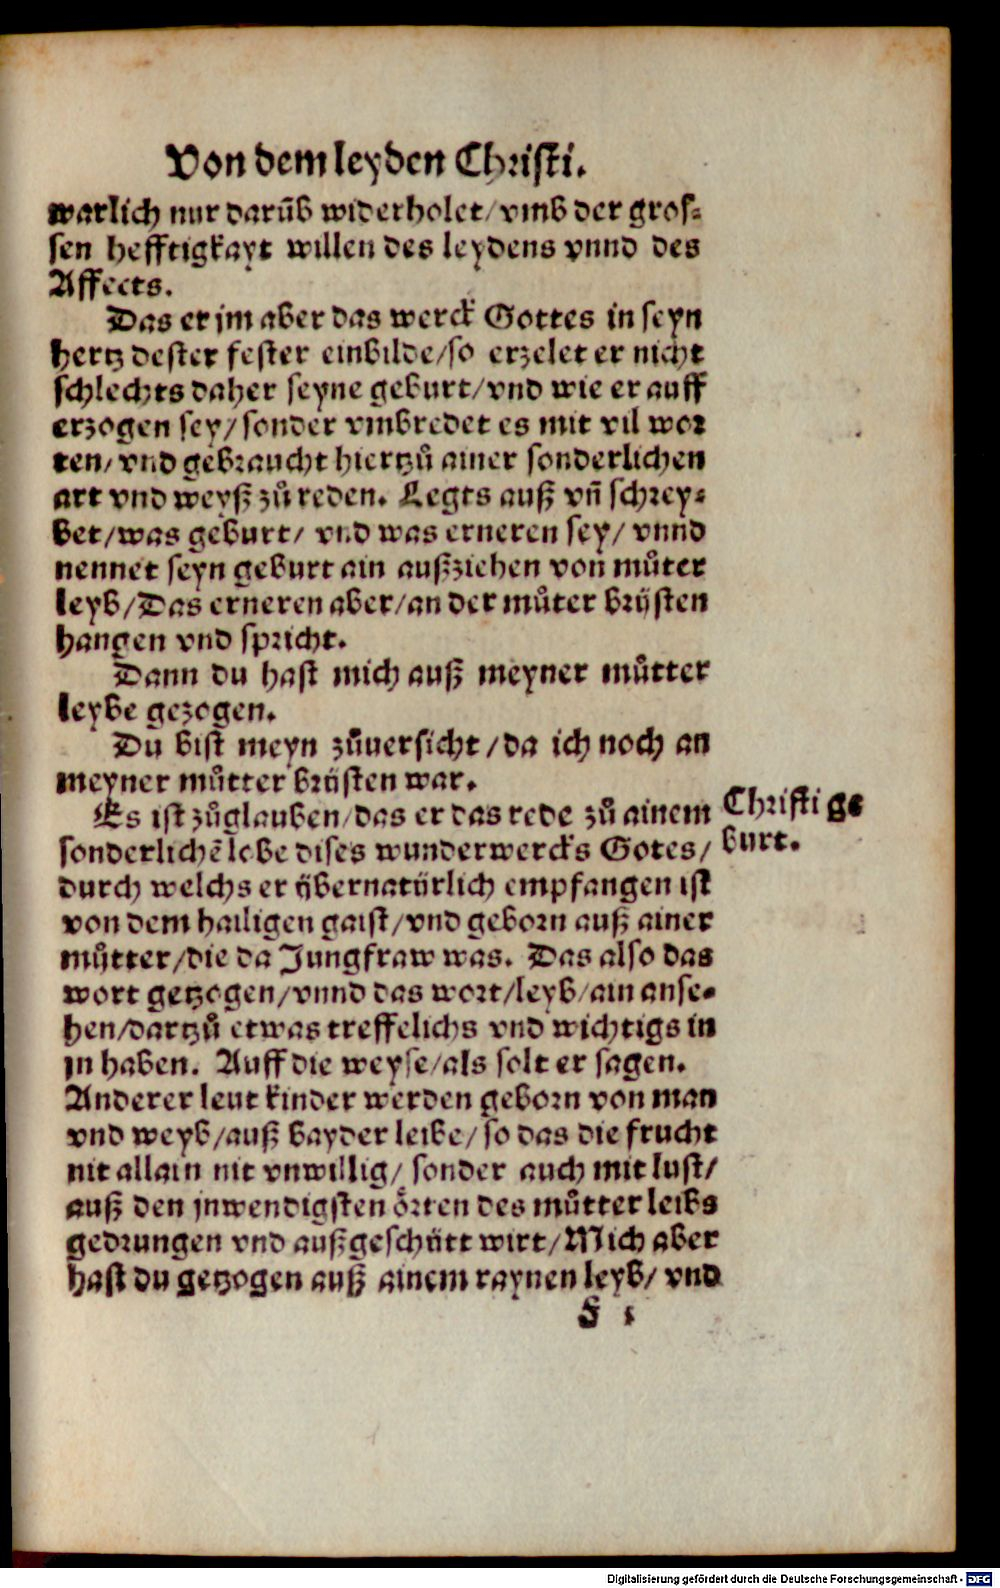 Von dem leyden Christi.
warlich nur darūb widerholet/ vmb der gros⸗
sen hefftigkayt willen des leydens vnnd des
Affects.
Das er jm aber das werck Gottes in seyn
hertz dester fester einbilde/ so erzelet er nicht
schlechts daher seyne geburt/ vnd wie er auff
erzogen sey/ sonder vmbredet es mit vil wor
ten/ vnd gebraucht hiertzů ainer sonderlichen
art vnd weyß zů reden. Legts auß vn̄ schrey⸗
bet/ was geburt/ vnd was erneren sey/ vnnd
nennet seyn geburt ain außziehen von můter
leyb/ Das erneren aber/ an der můter brüsten
hangen vnd spricht.
Dann du hast mich auß meyner můtter
leybe gezogen.
Du bist meyn zůuersicht/ da ich noch an
meyner můtter brüsten war.
Es ist zůglauben/ das er das rede zů ainem
sonderlichē lobe dises wunderwercks Gotes/
durch welchs er übernatürlich empfangen ist
von dem hailigen gaist/ vnd geborn auß ainer
můtter/ die da Jungfraw was. Das also das
wort getzogen/ vnnd das wort/ leyb/ ain anse⸗
hen/ dartzů etwas treffelichs vnd wichtigs in
jn haben. Auff die weyse/ als solt er sagen.
Anderer leut kinder werden geborn von man
vnd weyb/ auß bayder leibe/ so das die frucht
nit allain nit vnwillig/ sonder auch mit lust/
auß den jnwendigsten örten des můtter leibs
gedrungen vnd außgeschütt wirt/ Mich aber
hast du getzogen auß ainem raynen leyb/ vnd
Christi ge
burt.
F i
Digitalisierung gefördert durch die Deutsche Forschungsgemeinschaft - DFG